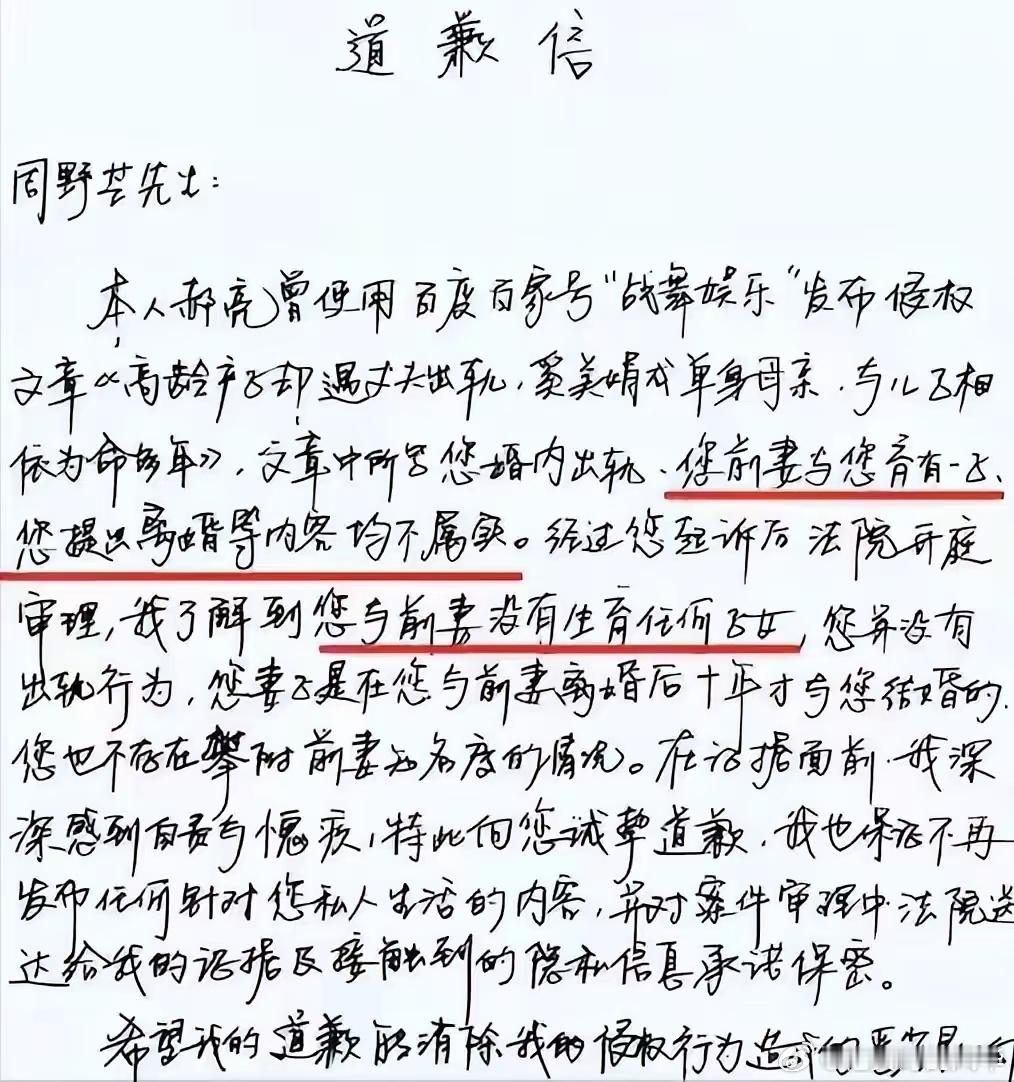 道歉信
周野芒先生：
本人郝亮曾使用百度百家号“战舞娱乐”发布侵权
文章《高龄产子却遇丈夫出轨，奚美娟成单身母亲，与儿子相
依为命多年》，文章中所写您婚内出轨、您前妻与您育有一子、
您提出离婚等内容均不属实。经过您起诉后法院开庭
审理，我了解到您与前妻没有生育任何子女，您并没有
出轨行为，您妻子是在您与前妻离婚后十年才与您结婚的，
您也不存在攀附前妻知名度的情况。在证据面前，我深
深感到自责与愧疚，特此向您诚挚道歉，我也保证不再
发布任何针对您私人生活的内容，并对案件审理中法院送
达给我的证据及接触到的隐私信息承诺保密。
希望我的道歉能消除我的侵权行为造成的